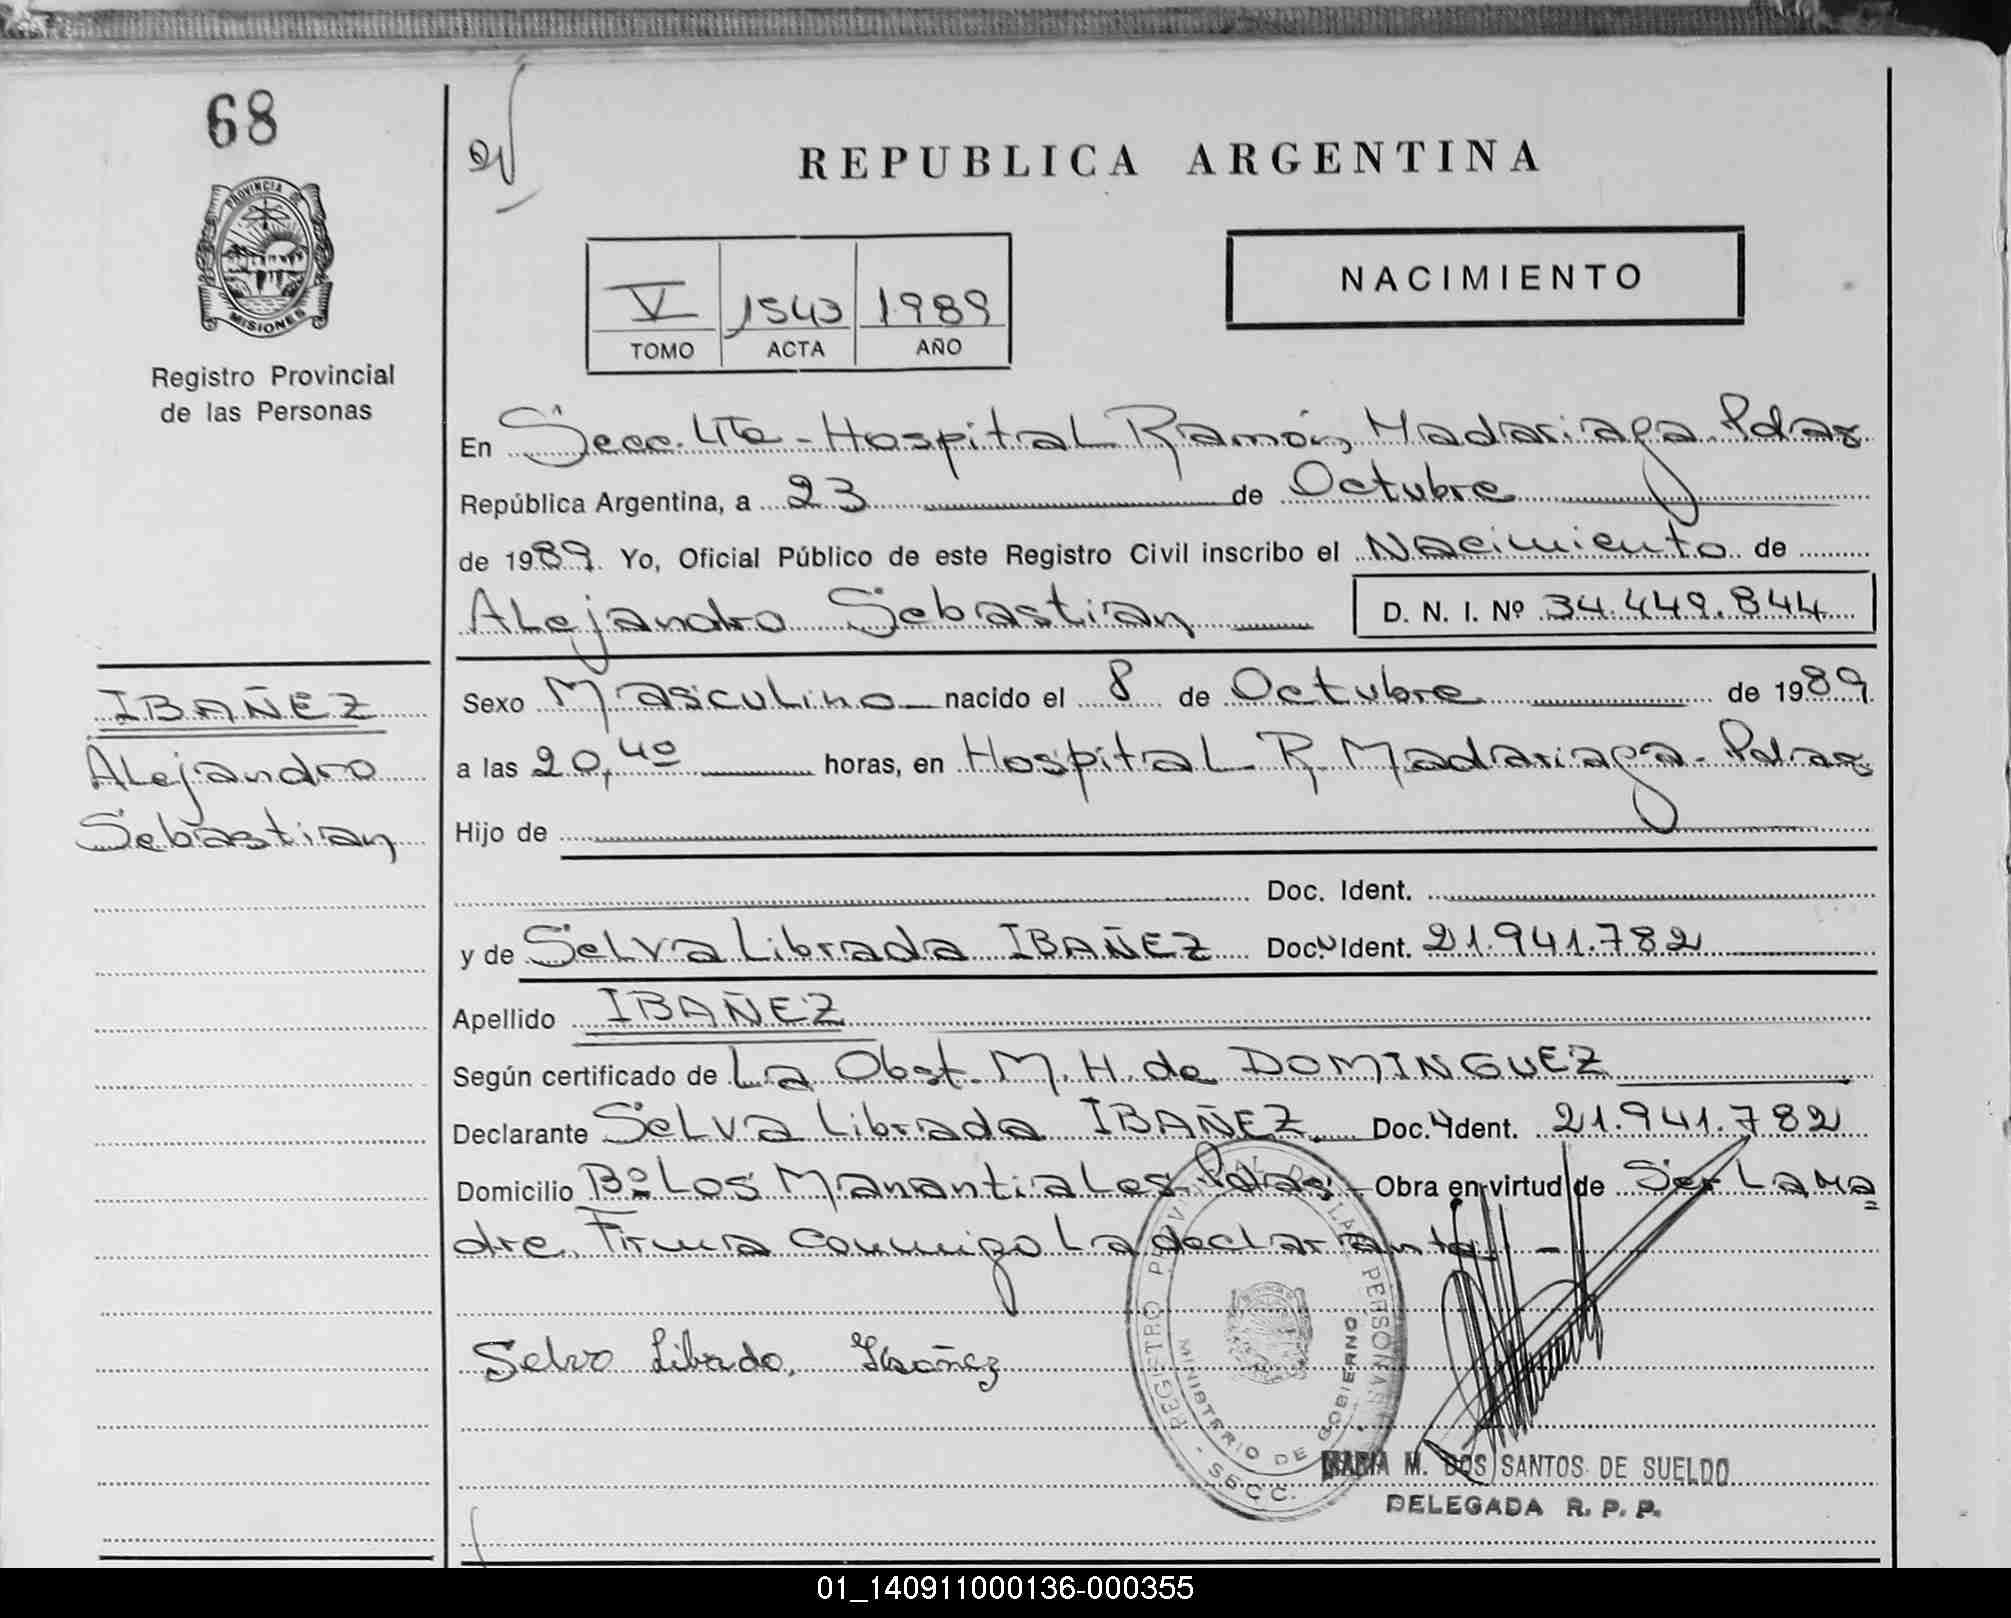 68
PROVINCIA DE
MISIONES
Registro Provincial
de las Personas
REPUBLICA ARGENTINA
V 1543 1989
TOMO ACTA AÑO
NACIMIENTO
En Secc. 4ta - Hospital Ramón, Madariaga. Pdas
República Argentina, a 23 de Octubre
de 1989. Yo, Oficial Público de este Registro Civil inscribo el Nacimiento de
Alejandro Sebastian D. N. I. Nº 34.449.844
IBAÑEZ
Alejandro
Sebastian
Sexo Masculino nacido el 8 de Octubre de 1989
a las 20,40 horas, en Hospital R. Madariaga - Pdas
Hijo de
Doc. Ident.
y de Selva Librada IBAÑEZ Doc. Ident. 21.941.782
Apellido IBAÑEZ
Según certificado de La Obst. M. H. de DOMINGUEZ
Declarante Selva Librada IBAÑEZ. Doc. Ident. 21.941.782
Domicilio Bº Los Manantiales Pdas; - Obra en virtud de Ser La ma
dre. Firma conmigo La declarante -
Selva Librada, Ibañez
REGISTRO PROVINCIAL DE LAS PERSONAS - SECC.
MINISTERIO DE GOBIERNO
MARIA M. DOS SANTOS DE SUELDO
DELEGADA R. P. P.
01_140911000136-000355